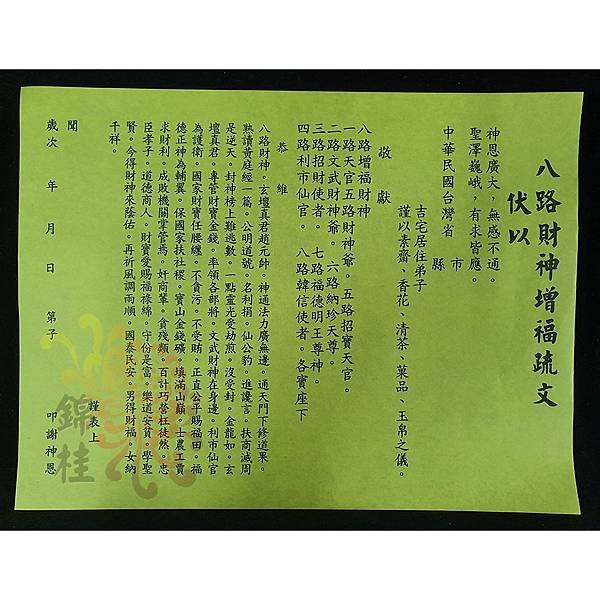 八路財神增福疏文
伏以
神恩廣大，無感不通。
聖澤巍峨，有求皆應。
中華民國台灣省 市縣
吉宅居住弟子
謹以素齋、香花、清茶、菓品、玉帛之儀。
敬獻
八路增福財神
一路天官五路財神爺。五路招寶天官。
二路文武財神爺。六路納珍天尊。
三路招財使者。七路福德明王尊神。
四路利市仙官。八路韓信使者。各寶座下
恭維
八路財神。玄壇真君趙元帥。神通法力廣無邊。通天門下修道果。
熟讀黃庭經一篇。公明道號。名利捐。仙公豹。進讒言。扶商滅周
是逆天。封神榜上難逃數。一點靈光受劫煎。沒受封。金龍如。玄
壇真君。專管財寶金錢。率領各部將。文武財神在身邊。利市仙官
為護衛。國家財寶任腰纏。不貪污。不受賄。正直公平賜福田。福
德正神為輔翼。保國家扶社稷。寶山金錢礦。填滿山巔。士農工賈
求財利。成敗機關掌管焉。奸商輩。貪殘類。百計巧營枉徒然。忠
臣孝子。道德商人。財寶愛賜福祿綿。守份是富。樂道安貧。學聖
賢。今得財神來蔭佑。再祈風調雨順。國泰民安。男得財福。女納
千祥。
謹表上
聞
歲次 年 月 日 第子 叩謝神恩
錦桂